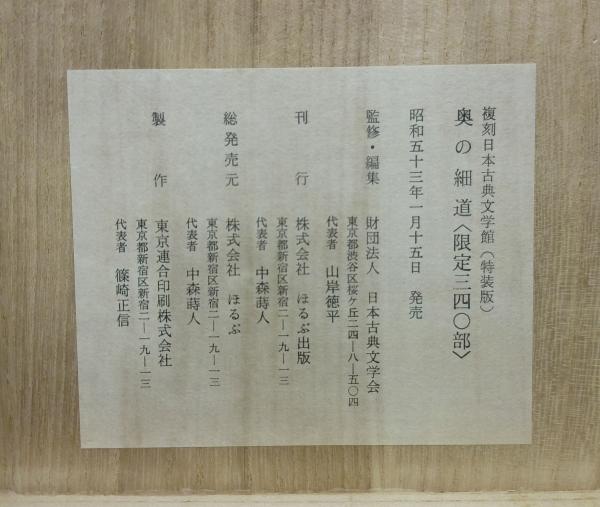 複刻日本古典文学館（特装版）
奥の細道〈限定三四〇部〉
昭和五十三年一月十五日　発売
監修・編集　財団法人　日本古典文学会
東京都渋谷区桜ケ丘二四―八―五〇四
代表者　山岸徳平
刊行　株式会社　ほるぷ出版
東京都新宿区新宿二―一九―一三
代表者　中森蒔人
総発売元　株式会社　ほるぷ
東京都新宿区新宿二―一九―一三
代表者　中森蒔人
製作　東京連合印刷株式会社
東京都新宿区新宿二―一九―一三
代表者　篠崎正信